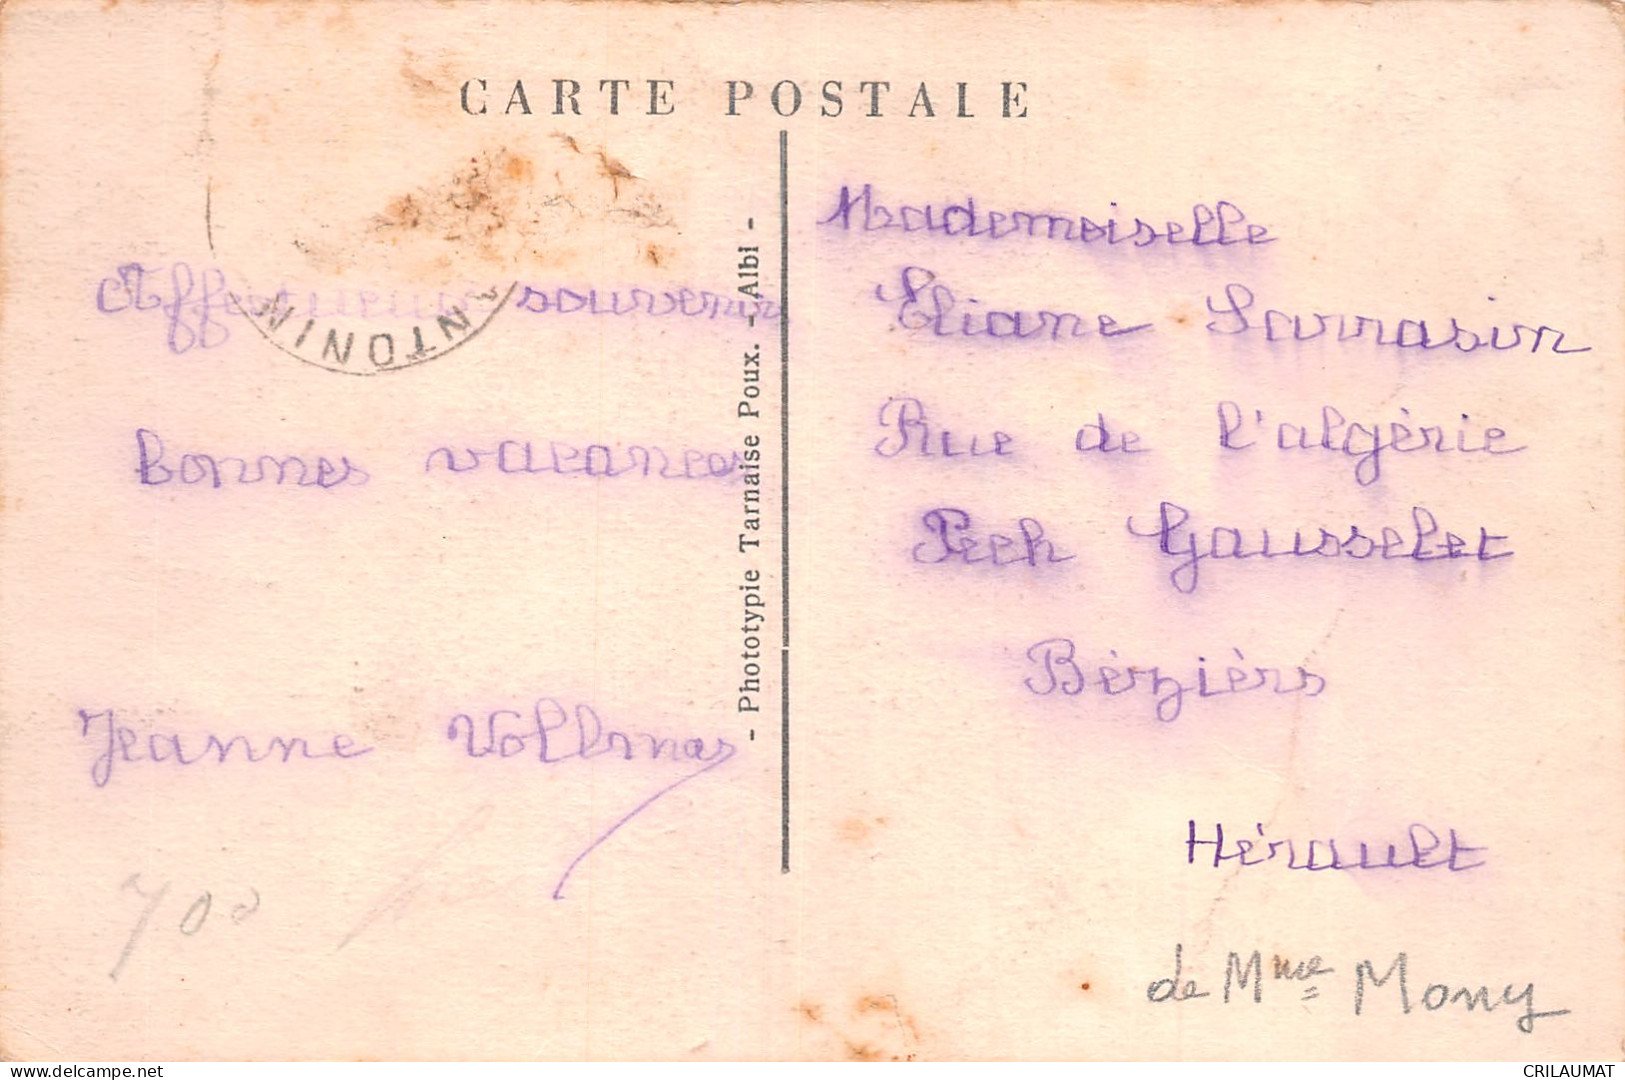 CARTE POSTALE
Affectueux souvenir
bonnes vacances
Jeanne
700
NTONIN
- Phototypie Tarnaise Poux. - Albi -
Mademoiselle
Eliane Sarrasin
Rue de l'algérie
Pech Gausselet
Bérzièrs
Hérault
de Mme Mony
www.delcampe.net
CRILAUMAT